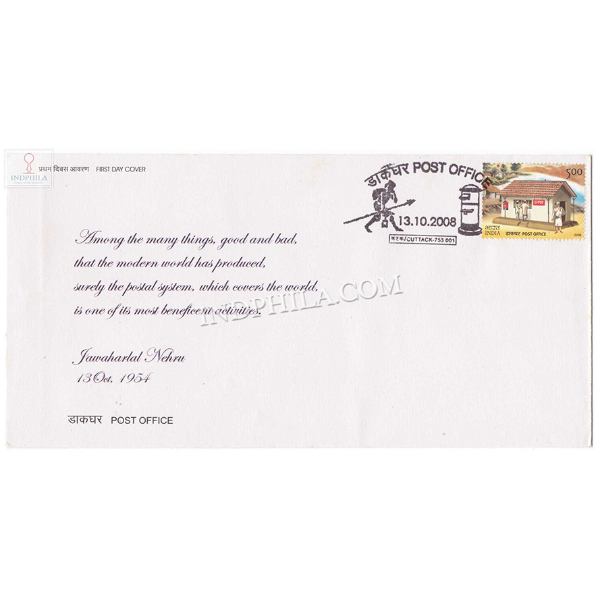 INDPHILA
प्रथम दिवस आवरण FIRST DAY COVER
डाकघर POST OFFICE
13.10.2008
कटक/CUTTACK-753 001
5.00
भारत
INDIA
डाकघर POST OFFICE
2008
Among the many things, good and bad,
that the modern world has produced,
surely the postal system, which covers the world,
is one of its most beneficent activities.
INDPHILA.COM
Jawaharlal Nehru
13 Oct. 1954
डाकघर POST OFFICE